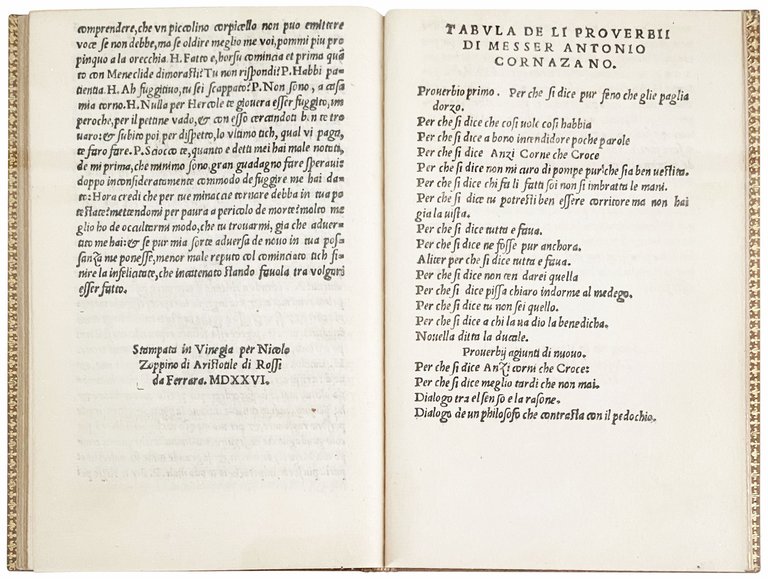 comprendere, che vn piccolino corpicello non puo emittere
voce se non debbe, ma se oldire meglio me voi, pommi piu pro
pinquo a la orecchia. H. Fatto e, horsu comincia et prima quā
to con Meneclide dimorasti? Tu non rispondi? P. Habbi pa-
tientia. H. Ah fuggitiuo, tu sei scappato? P. Non sono, a casa
mia torno. H. Nulla per Hercole te giouera esser fuggito, im
peroche, per il pettine vado, & con esso cercandoti ben te tro
uaro: & subito poi per dispetto, lo vltimo tich, qual vi paga,
te faro fare. P. Sciocco te, quanto e detti mei hai male notati,
de mi prima, che minimo sono, gran guadagno fare speraui:
doppo inconsideratamente commodo de fuggire me hai da-
to: Hora credi che per tue minacae tornare debba in tua po
testate? metendomi per paura a pericolo de morte? molto me
glio ho de occultarmi modo, che tu trouarmi, gia che aduer-
tito me hai: & se pur mia sorte aduersa de nouo in tua pos-
sanza me ponesse, menor male reputo col cominciato tich fi-
nire la infelicitate, che incattenato stando fauola tra volgari
esser fatto.
Stampata in Vinegia per Nicolo
Zoppino di Aristotile di Rossi
da Ferrara. MDXXVI.
TABVLA DE LI PROVERBII
DI MESSER ANTONIO
CORNAZANO.
Prouerbio primo. Per che si dice pur seno che glie paglia
dorzo.
Per che si dice che cosi vole cosi habbia
Per che si dice a bono intendidore poche parole
Per che si dice Anzi Corne che Croce
Per che si dice non mi curo di pompe pur che sia ben uestita.
Per che si dice chi fa li fatti soi non si imbratta le mani.
Per che si dice tu potresti ben essere corritore ma non hai
gia la uista.
Per che si dice tutta e faua.
Per che si dice ne fosse pur anchora.
Aliter per che si dice tutta e faua.
Per che si dice non ten darei quella
Per che si dice pissa chiaro indorme al medego.
Per che si dice tu non sei quello.
Per che si dice a chi la ua dio la benedicha.
Nouella ditta la ducale.
Prouerbij agiunti di nuouo.
Per che si dice Anzi corni che Croce:
Per che si dice meglio tardi che non mai.
Dialogo tra el senso e la rasone.
Dialogo de un philosofo che contrasta con il pedochio.